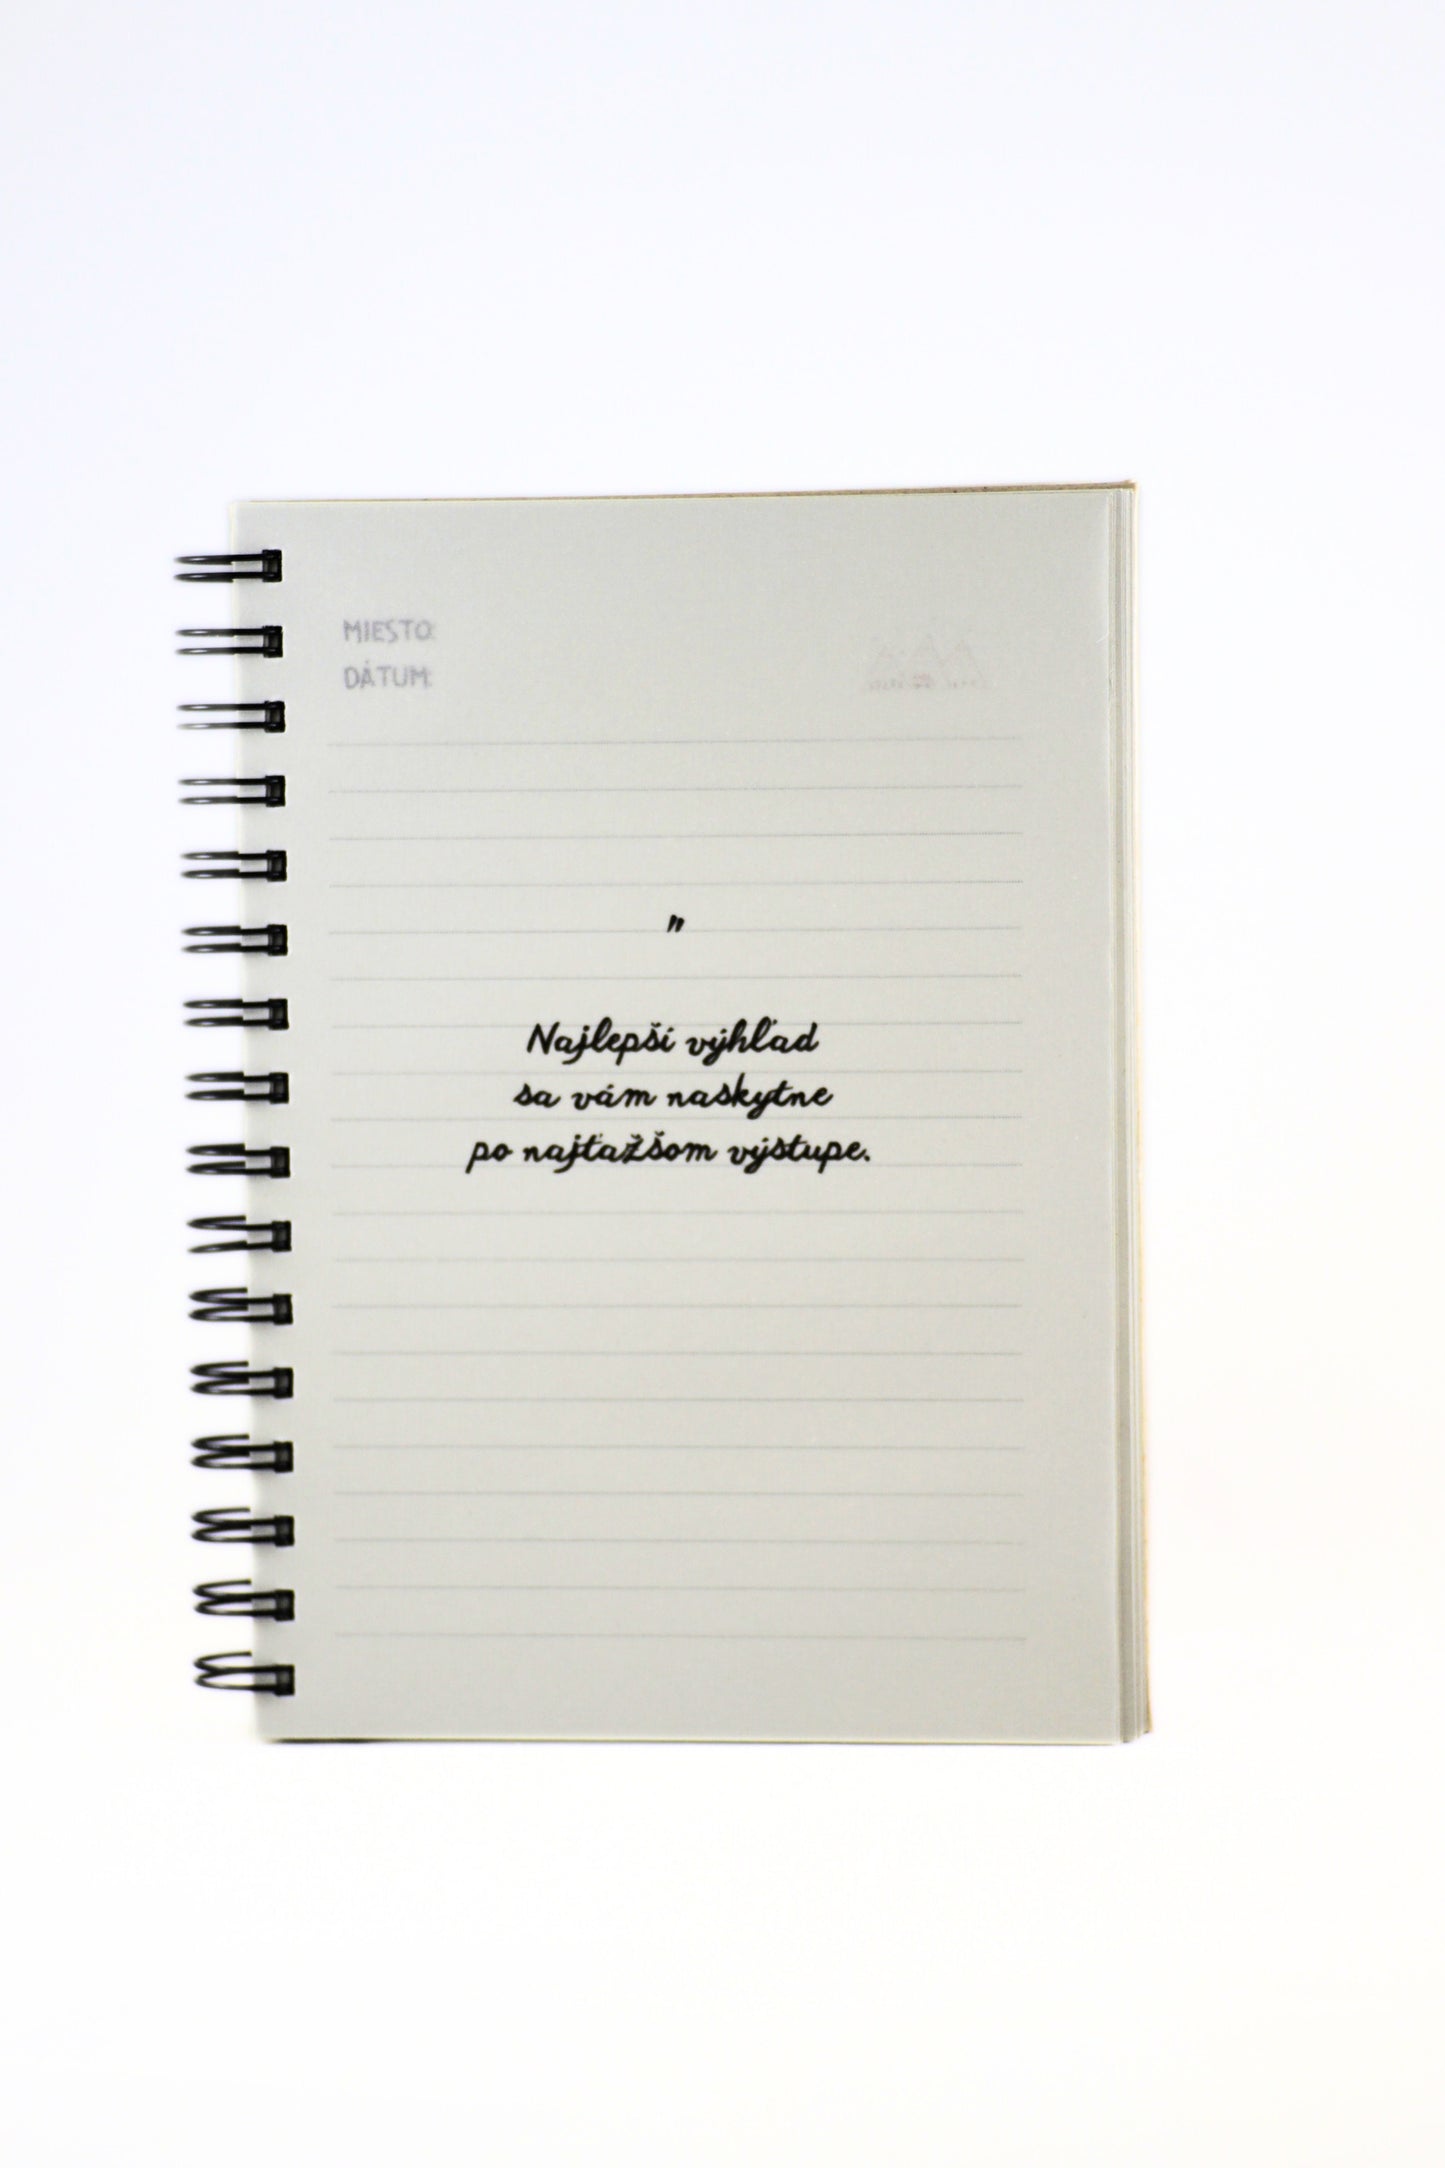 MIESTO:
DÁTUM:
"
Najlepší výhľad
sa vám naskytne
po najťažšom výstupe.